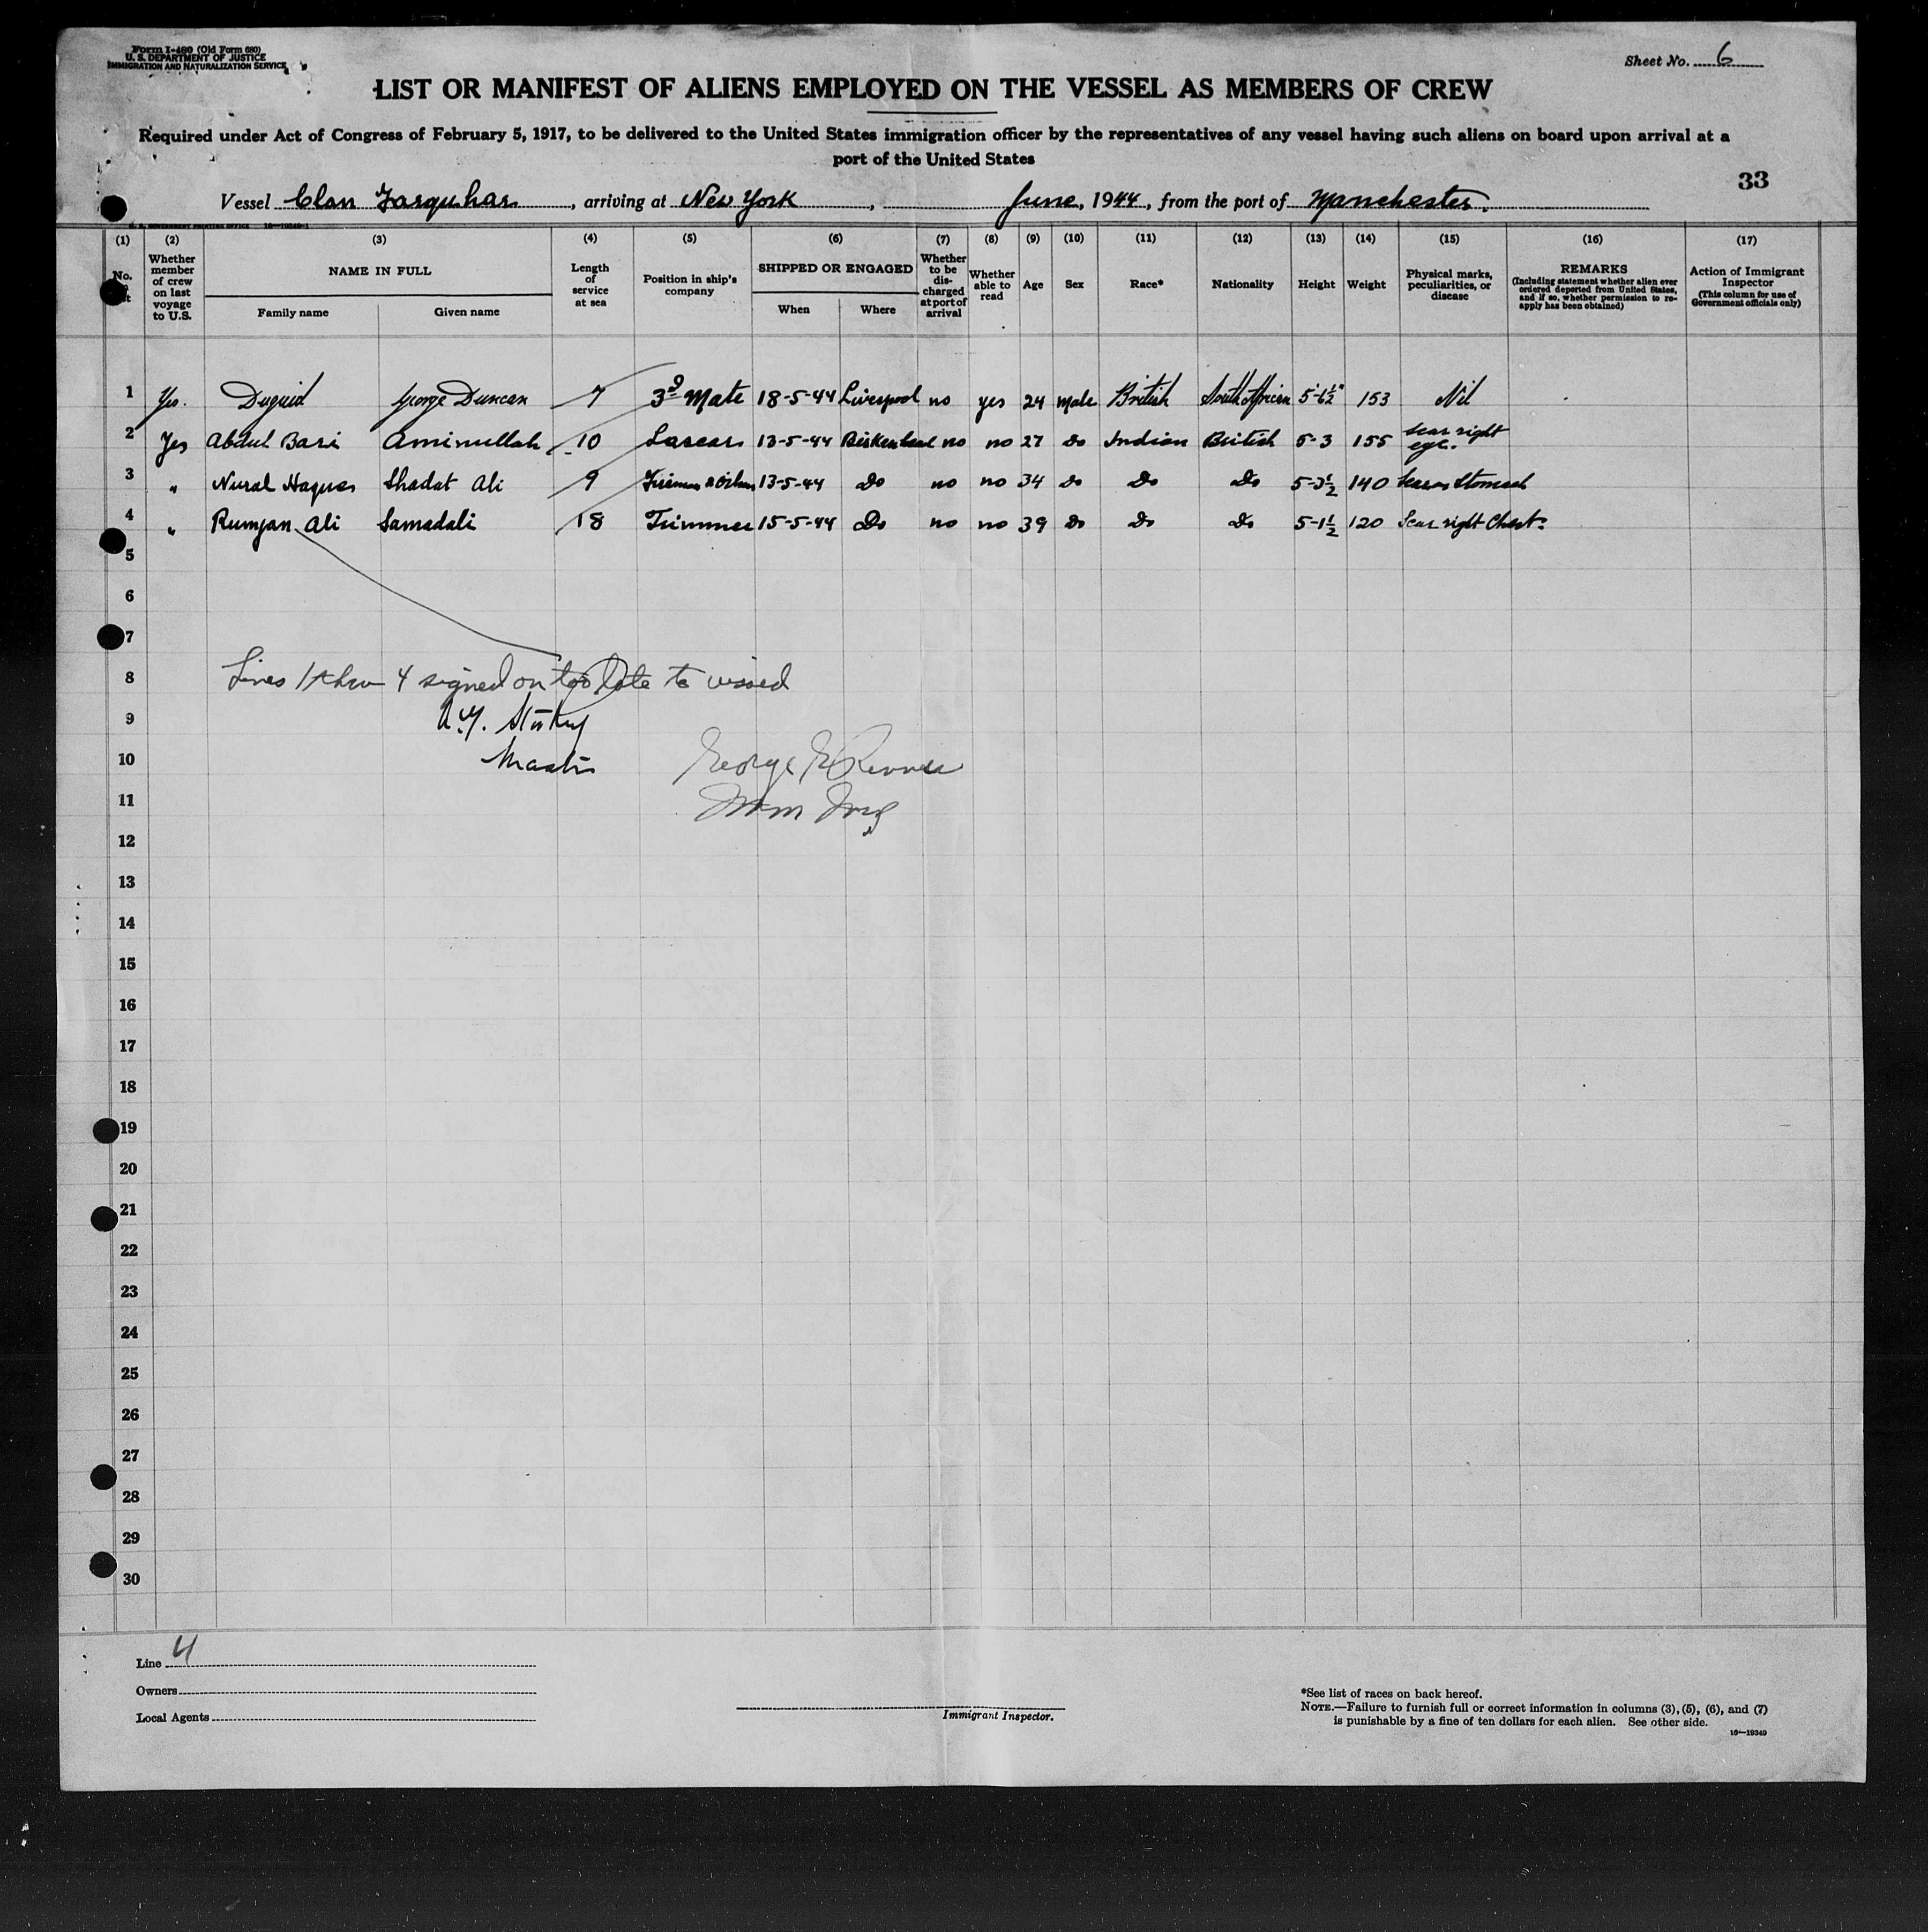 Form I-480 (Old Form 680)
U. S. DEPARTMENT OF JUSTICE
IMMIGRATION AND NATURALIZATION SERVICE
Sheet No. 6
LIST OR MANIFEST OF ALIENS EMPLOYED ON THE VESSEL AS MEMBERS OF CREW
Required under Act of Congress of February 5, 1917, to be delivered to the United States immigration officer by the representatives of any vessel having such aliens on board upon arrival at a
port of the United States
33
Vessel Clan Farquhar, arriving at New York, June, 1944, from the port of Manchester.
U. S. GOVERNMENT PRINTING OFFICE 16-19349-1
(1) (2) (3) (4) (5) (6) (7) (8) (9) (10) (11) (12) (13) (14) (15) (16) (17)
No.
Whether member of crew on last voyage to U.S.
NAME IN FULL
Family name
Given name
Length of service at sea
Position in ship's company
SHIPPED OR ENGAGED
When
Where
Whether to be discharged at port of arrival
Whether able to read
Age
Sex
Race*
Nationality
Height
Weight
Physical marks, peculiarities, or disease
REMARKS
(Including statement whether alien ever ordered deported from United States, and if so, whether permission to reapply has been obtained)
Action of Immigrant Inspector
(This column for use of Government officials only)
1 Yes. Duguid George Duncan 7 3d Mate 18-5-44 Liverpool no yes 24 Male British South African 5'-6½" 153 Nil
2 Yes Abdul Bari Aminullah 10 Lascar 13-5-44 Birkenhead no no 27 Do Indian British 5-3 155 Scar right eye.
3 " Nural Haque Shadat Ali 9 Fireman 13-5-44 Do no no 34 Do Do Do 5-3½ 140 Scar on Stomach
4 " Rumjan Ali Samadali 18 Trimmer 15-5-44 Do no no 39 Do Do Do 5-1½ 120 Scar right Chest.
5
6
7
8 Lines 1 thru 4 signed on too late to visaed
9
10 Master
George
11
12
13
14
15
16
17
18
19
20
21
22
23
24
25
26
27
28
29
30
Line 4
Owners
Local Agents
Immigrant Inspector.
*See list of races on back hereof.
NOTE.—Failure to furnish full or correct information in columns (3), (5), (6), and (7)
is punishable by a fine of ten dollars for each alien. See other side.
16—19349